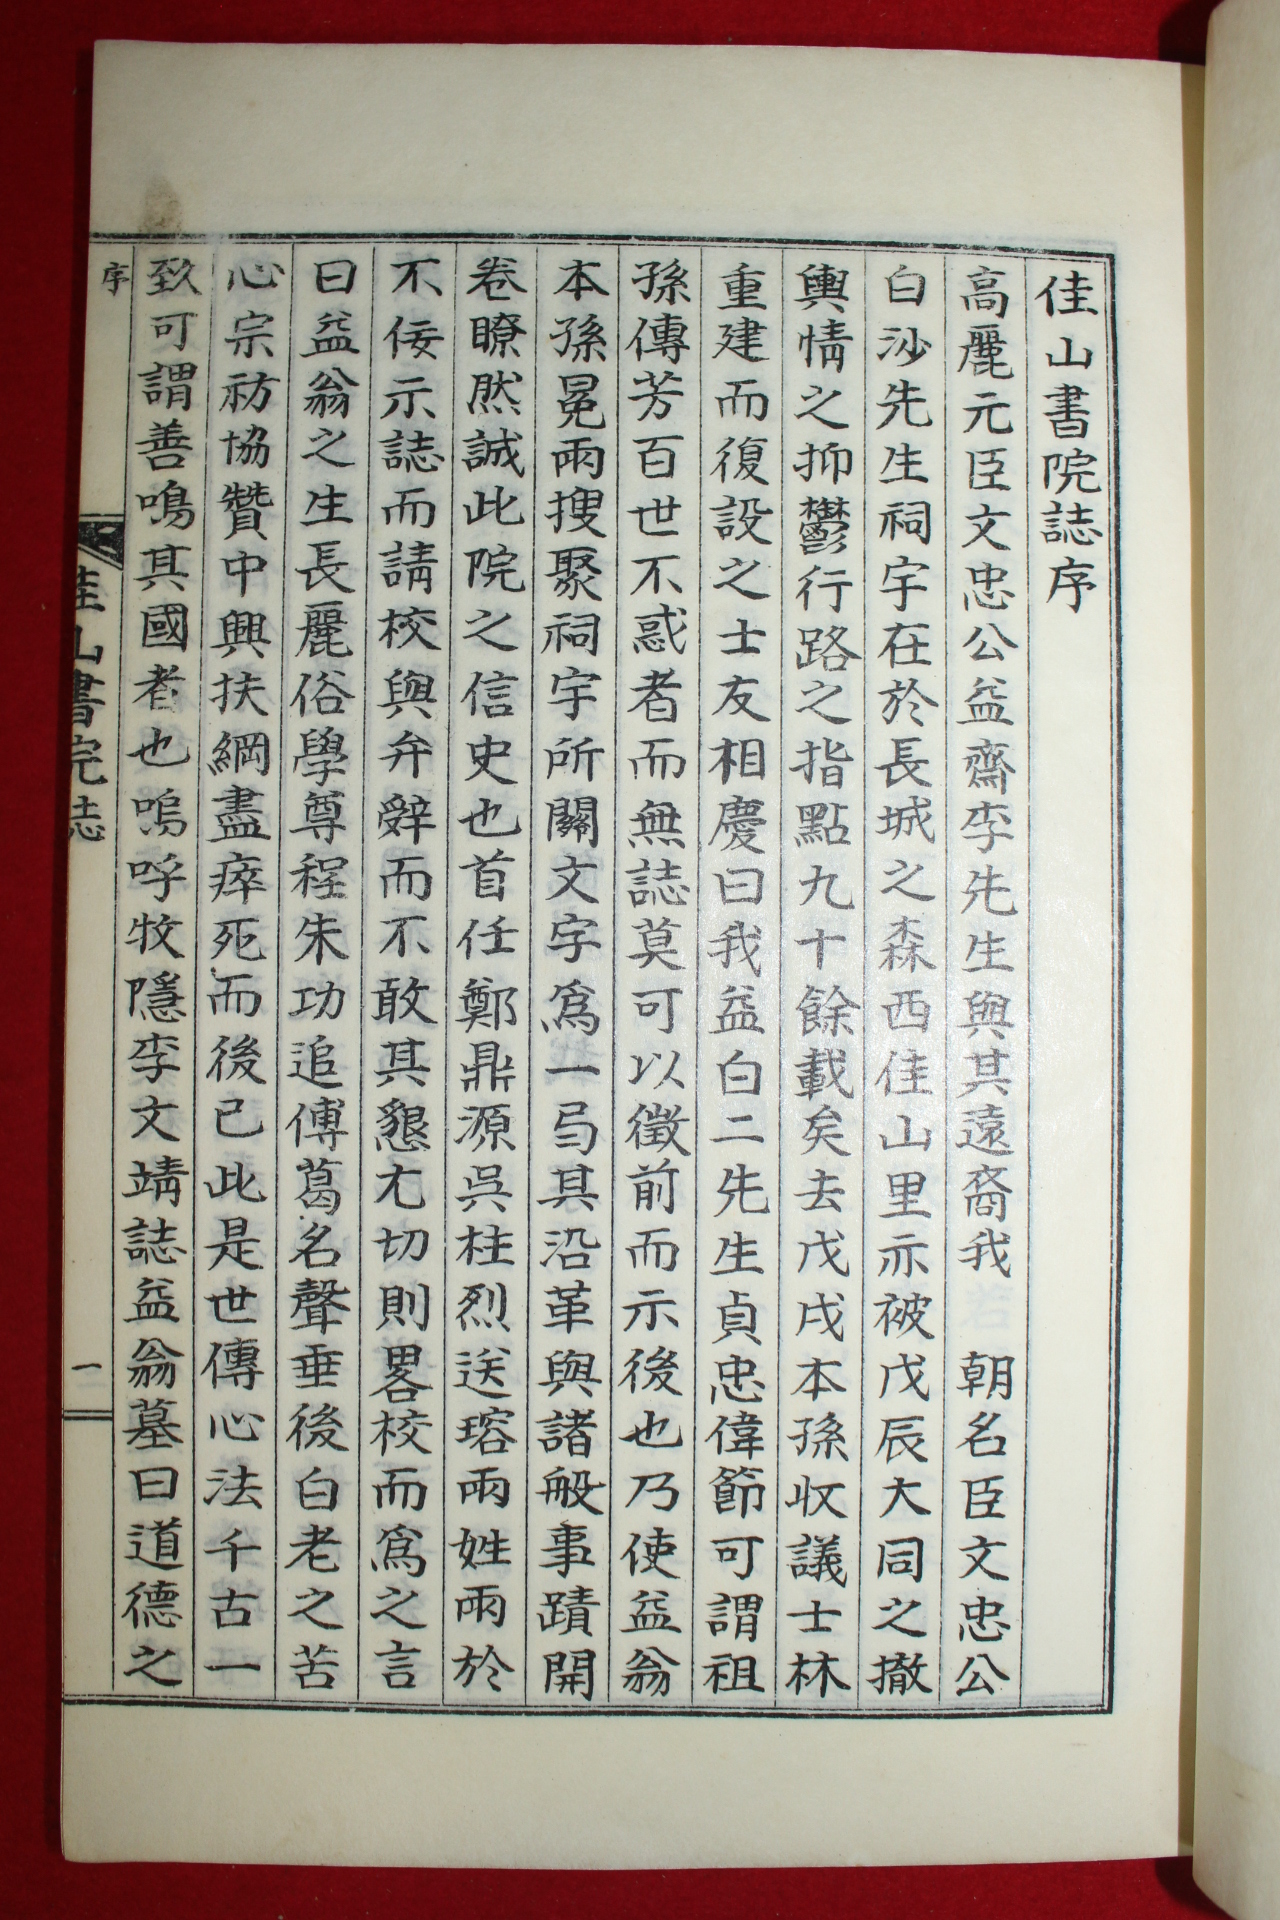 佳山書院誌序
高麗元臣文忠公益齋李先生與其遠裔我　朝名臣文忠公
白沙先生祠宇在於長城之森西佳山里亦被戊辰大同之撤
輿情之抑鬱行路之指點九十餘載矣去戊戌本孫收議士林
重建而復設之士友相慶曰我益白二先生貞忠偉節可謂祖
孫傳芳百世不惑者而無誌莫可以徵前而示後也乃使益翁
本孫冕兩搜聚祠宇所關文字爲一弓其沿革與諸般事蹟開
卷瞭然誠此院之信史也首任鄭鼎源吳柱烈送瑢兩姓兩於
不佞示誌而請校與弁辭而不敢其懇尤切則畧校而爲之言
曰益翁之生長麗俗學尊程朱功追傅葛名聲垂後白老之苦
心宗祊協贊中興扶綱盡瘁死而後已此是世傳心法千古一
致可謂善鳴其國者也嗚呼牧隱李文靖誌益翁墓曰道德之
序
佳山書院誌
一